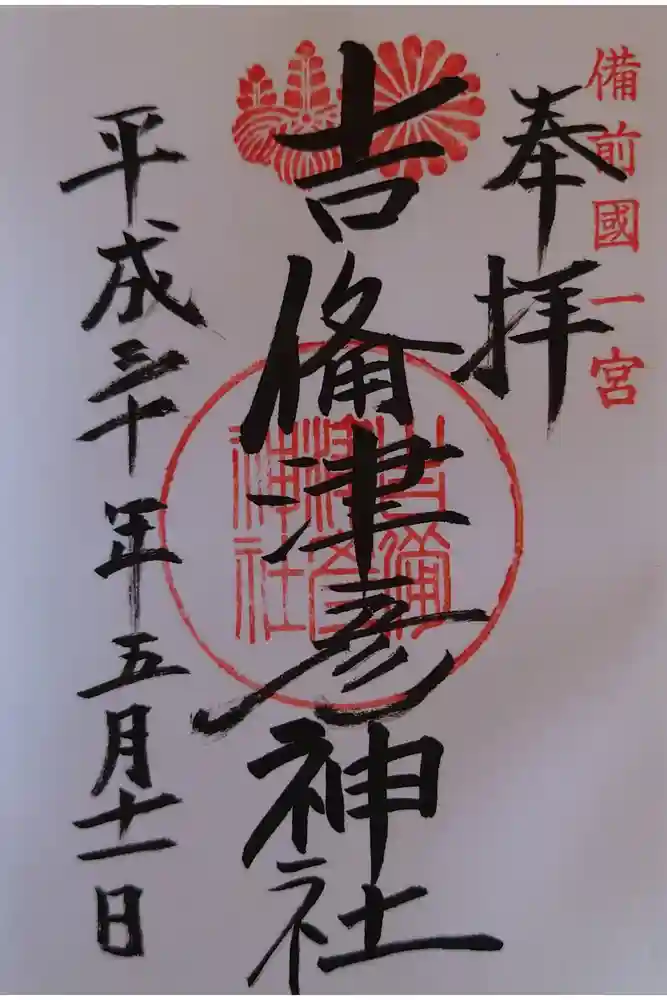 備前國一宮
奉拝
吉備津彦神社
吉備
津彦
神社
平成三十年五月十一日